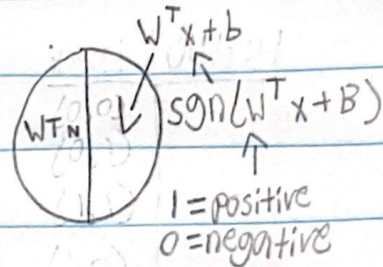 W^T x + b
WTN
sgn(W^T x + B)
1 = positive
0 = negative